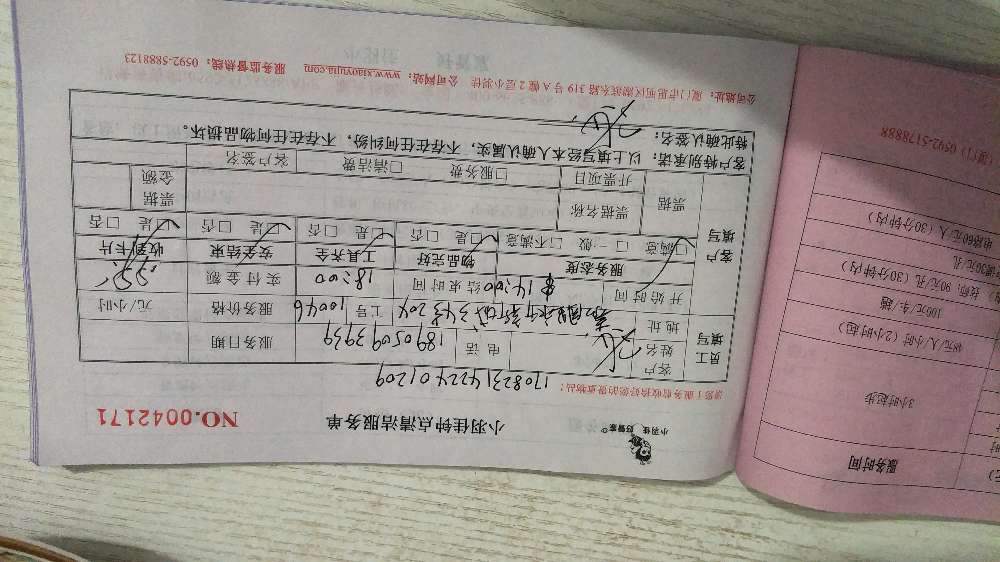 小羽佳 好管家
小羽佳钟点清洁服务单
NO.0042171
1708231422401209
员工填写
客户姓名
电话 18905093939
服务日期
地址
204
工号 10046
服务价格
元/小时
开始时间 14:00
结束时间 18:00
实付金额
客户填写
服务态度
物品完好
工具齐全
安全结束
收到卡片
□满意 □一般 □不满意
□是 □否
□是 □否
□是 □否
□是 □否
票据
票据名称
票据金额
开票项目
□服务费 □清洁费
客户签名
客户特别承诺：以上填写经本人确认属实，不存在任何纠纷，不存在任何物品损坏。
特此确认签名：
公司地址：厦门市思明区湖滨东路319号A幢2层小羽佳 公司网站：www.xiaoyujia.com 服务监督热线：0592-5888123
服务时间
3小时起步
(2小时起)
100元/车/趟
90元/孔 (30分钟内)
60元/人 (30分钟内)
(厦门) 0592-5178888